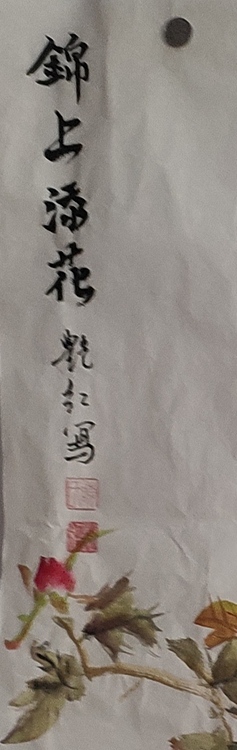 錦上添花
乾紅寫